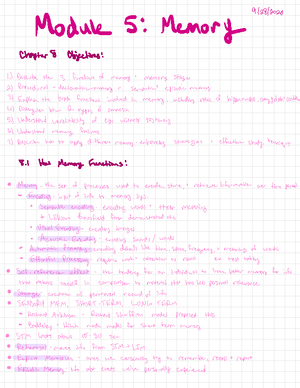 9/28/2020
Module 5: Memory
Chapter 8 Objectives:
1) Describe the 3 functions of memory + memory steps
2) Procedural + declarative memory + semantic + episodic memory
3) Explain the brain functions involved in memory, including
4) Recognize the types of amnesia
5) Understand unreliability of eye witness testimony
6) Understand memory failure
7) memory enhancing strategies + effective study
8.1 How Memory Functions:
Memory - the set of processes used to encode, store, + retrieve information over time
Encoding - input of info to memory system
Semantic encoding - encoding words + their meaning
Visual Encoding - encoding images
Acoustic Encoding - encoding sounds / words
Automatic Processing - encoding details like time, space, frequency, + meaning of words
Effortful Processing - requires work + attention to encode
Self reference effect - the tendency for an individual to have better memory for info
that relates oneself in comparison to material that has less personal relevance
Storage - creation of permanent record of info
SENSORY MEM, SHORT TERM, LONG TERM
Atkinson - Richard Shiffrin model
Baddeley + Hitch made model for short term memory
STM lasts about 15-30 sec
Rehearsal - moves info from STM → LTM
Explicit Memories - ones we consciously try to remember, store + report
Episodic Memory - info about events we've personally experienced